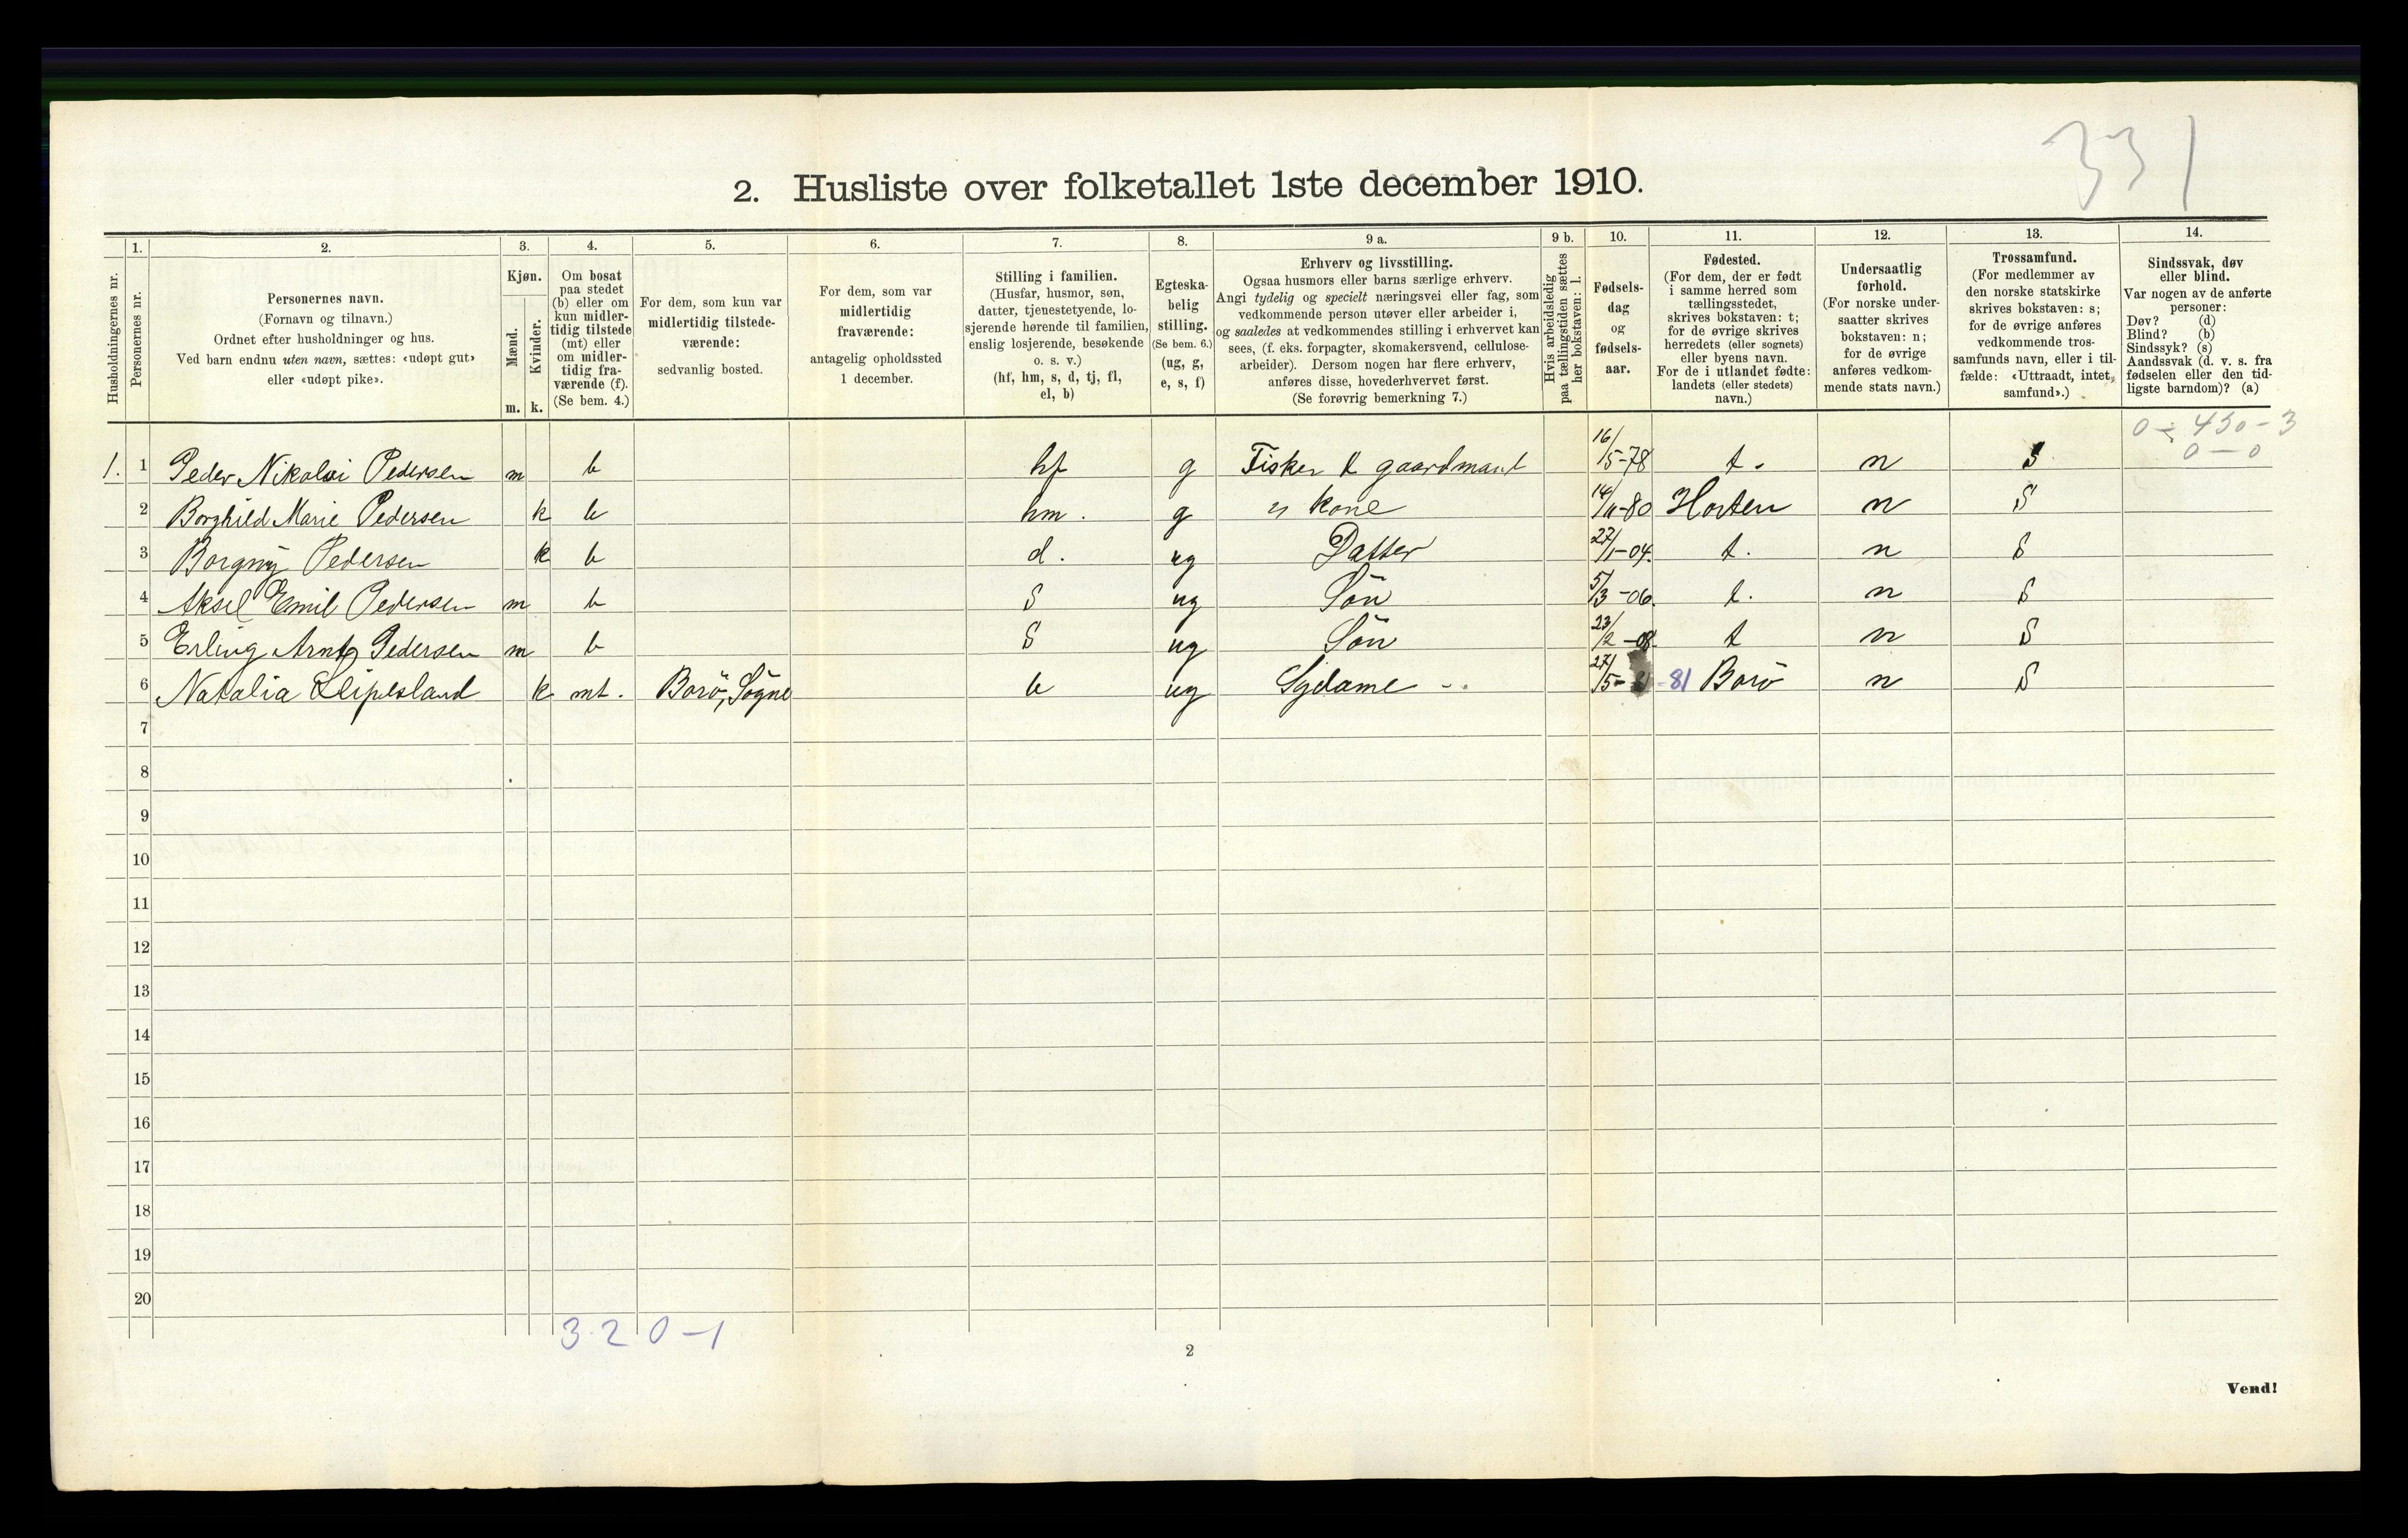 331
2. Husliste over folketallet 1ste december 1910.
Husholdningernes nr.
1.
Personernes nr.
2.
Personernes navn.
(Fornavn og tilnavn.)
Ordnet efter husholdninger og hus.
Ved barn endnu uten navn, sættes: «udøpt gut»
eller «udøpt pike».
3.
Kjøn.
Mænd.
Kvinder.
m. k.
4.
Om bosat
paa stedet
(b) eller om
kun midler-
tidig tilstede
(mt) eller
om midler-
tidig fra-
værende (f).
(Se bem. 4.)
5.
For dem, som kun var
midlertidig tilstede-
værende:
sedvanlig bosted.
6.
For dem, som var
midlertidig
fraværende:
antagelig opholdssted
1 december.
7.
Stilling i familien.
(Husfar, husmor, søn,
datter, tjenestetyende, lo-
sjerende hørende til familien,
enslig losjerende, besøkende
o. s. v.)
(hf, hm, s, d, tj, fl,
el, b)
8.
Egteska-
belig
stilling.
(Se bem. 6.)
(ug, g,
e, s, f)
9 a.
Erhverv og livsstilling.
Ogsaa husmors eller barns særlige erhverv.
Angi tydelig og specielt næringsvei eller fag, som
vedkommende person utøver eller arbeider i,
og saaledes at vedkommendes stilling i erhvervet kan
sees, (f. eks. forpagter, skomakersvend, cellulose-
arbeider). Dersom nogen har flere erhverv,
anføres disse, hovederhvervet først.
(Se forøvrig bemerkning 7.)
9 b.
Hvis arbeidsledig
paa tællingstiden sættes
her bokstaven: l.
10.
Fødsels-
dag
og
fødsels-
aar.
11.
Fødested.
(For dem, der er født
i samme herred som
tællingsstedet,
skrives bokstaven: t;
for de øvrige skrives
herredets (eller sognets)
eller byens navn.
For de i utlandet fødte:
landets (eller stedets)
navn.)
12.
Undersaatlig
forhold.
(For norske under-
saatter skrives
bokstaven: n;
for de øvrige
anføres vedkom-
mende stats navn.)
13.
Trossamfund.
(For medlemmer av
den norske statskirke
skrives bokstaven: s;
for de øvrige anføres
vedkommende tros-
samfunds navn, eller i til-
fælde: «Uttraadt, intet
samfund».)
14.
Sindssvak, døv
eller blind.
Var nogen av de anførte
personer:
Døv? (d)
Blind? (b)
Sindssyk? (s)
Aandssvak (d. v. s. fra
fødselen eller den tid-
ligste barndom)? (a)
0 - 450 - 3
0 - 0
1. 1 Peder Nikolai Pedersen m b hf g Fisker & gaardmand 16/5-78 t. n S
2 Borghild Marie Pedersen k b hm. g " kone 14/11-80 Horten n S
3 Borgny Pedersen k b d. ug Datter 27/1-04. t. n S
4 Aksel Emil Pedersen m b S ug Sön 5/3-06. t. n S
5 Erling Arnt Pedersen m b S ug Sön 23/2-08. t n S
6 Natalia Kleipesland k mt. Borö, Sögne b ug Sydame 27/5- -81 Borö n S
7
8
9
10
11
12
13
14
15
16
17
18
19
20
3 2 0-1
2
Vend!